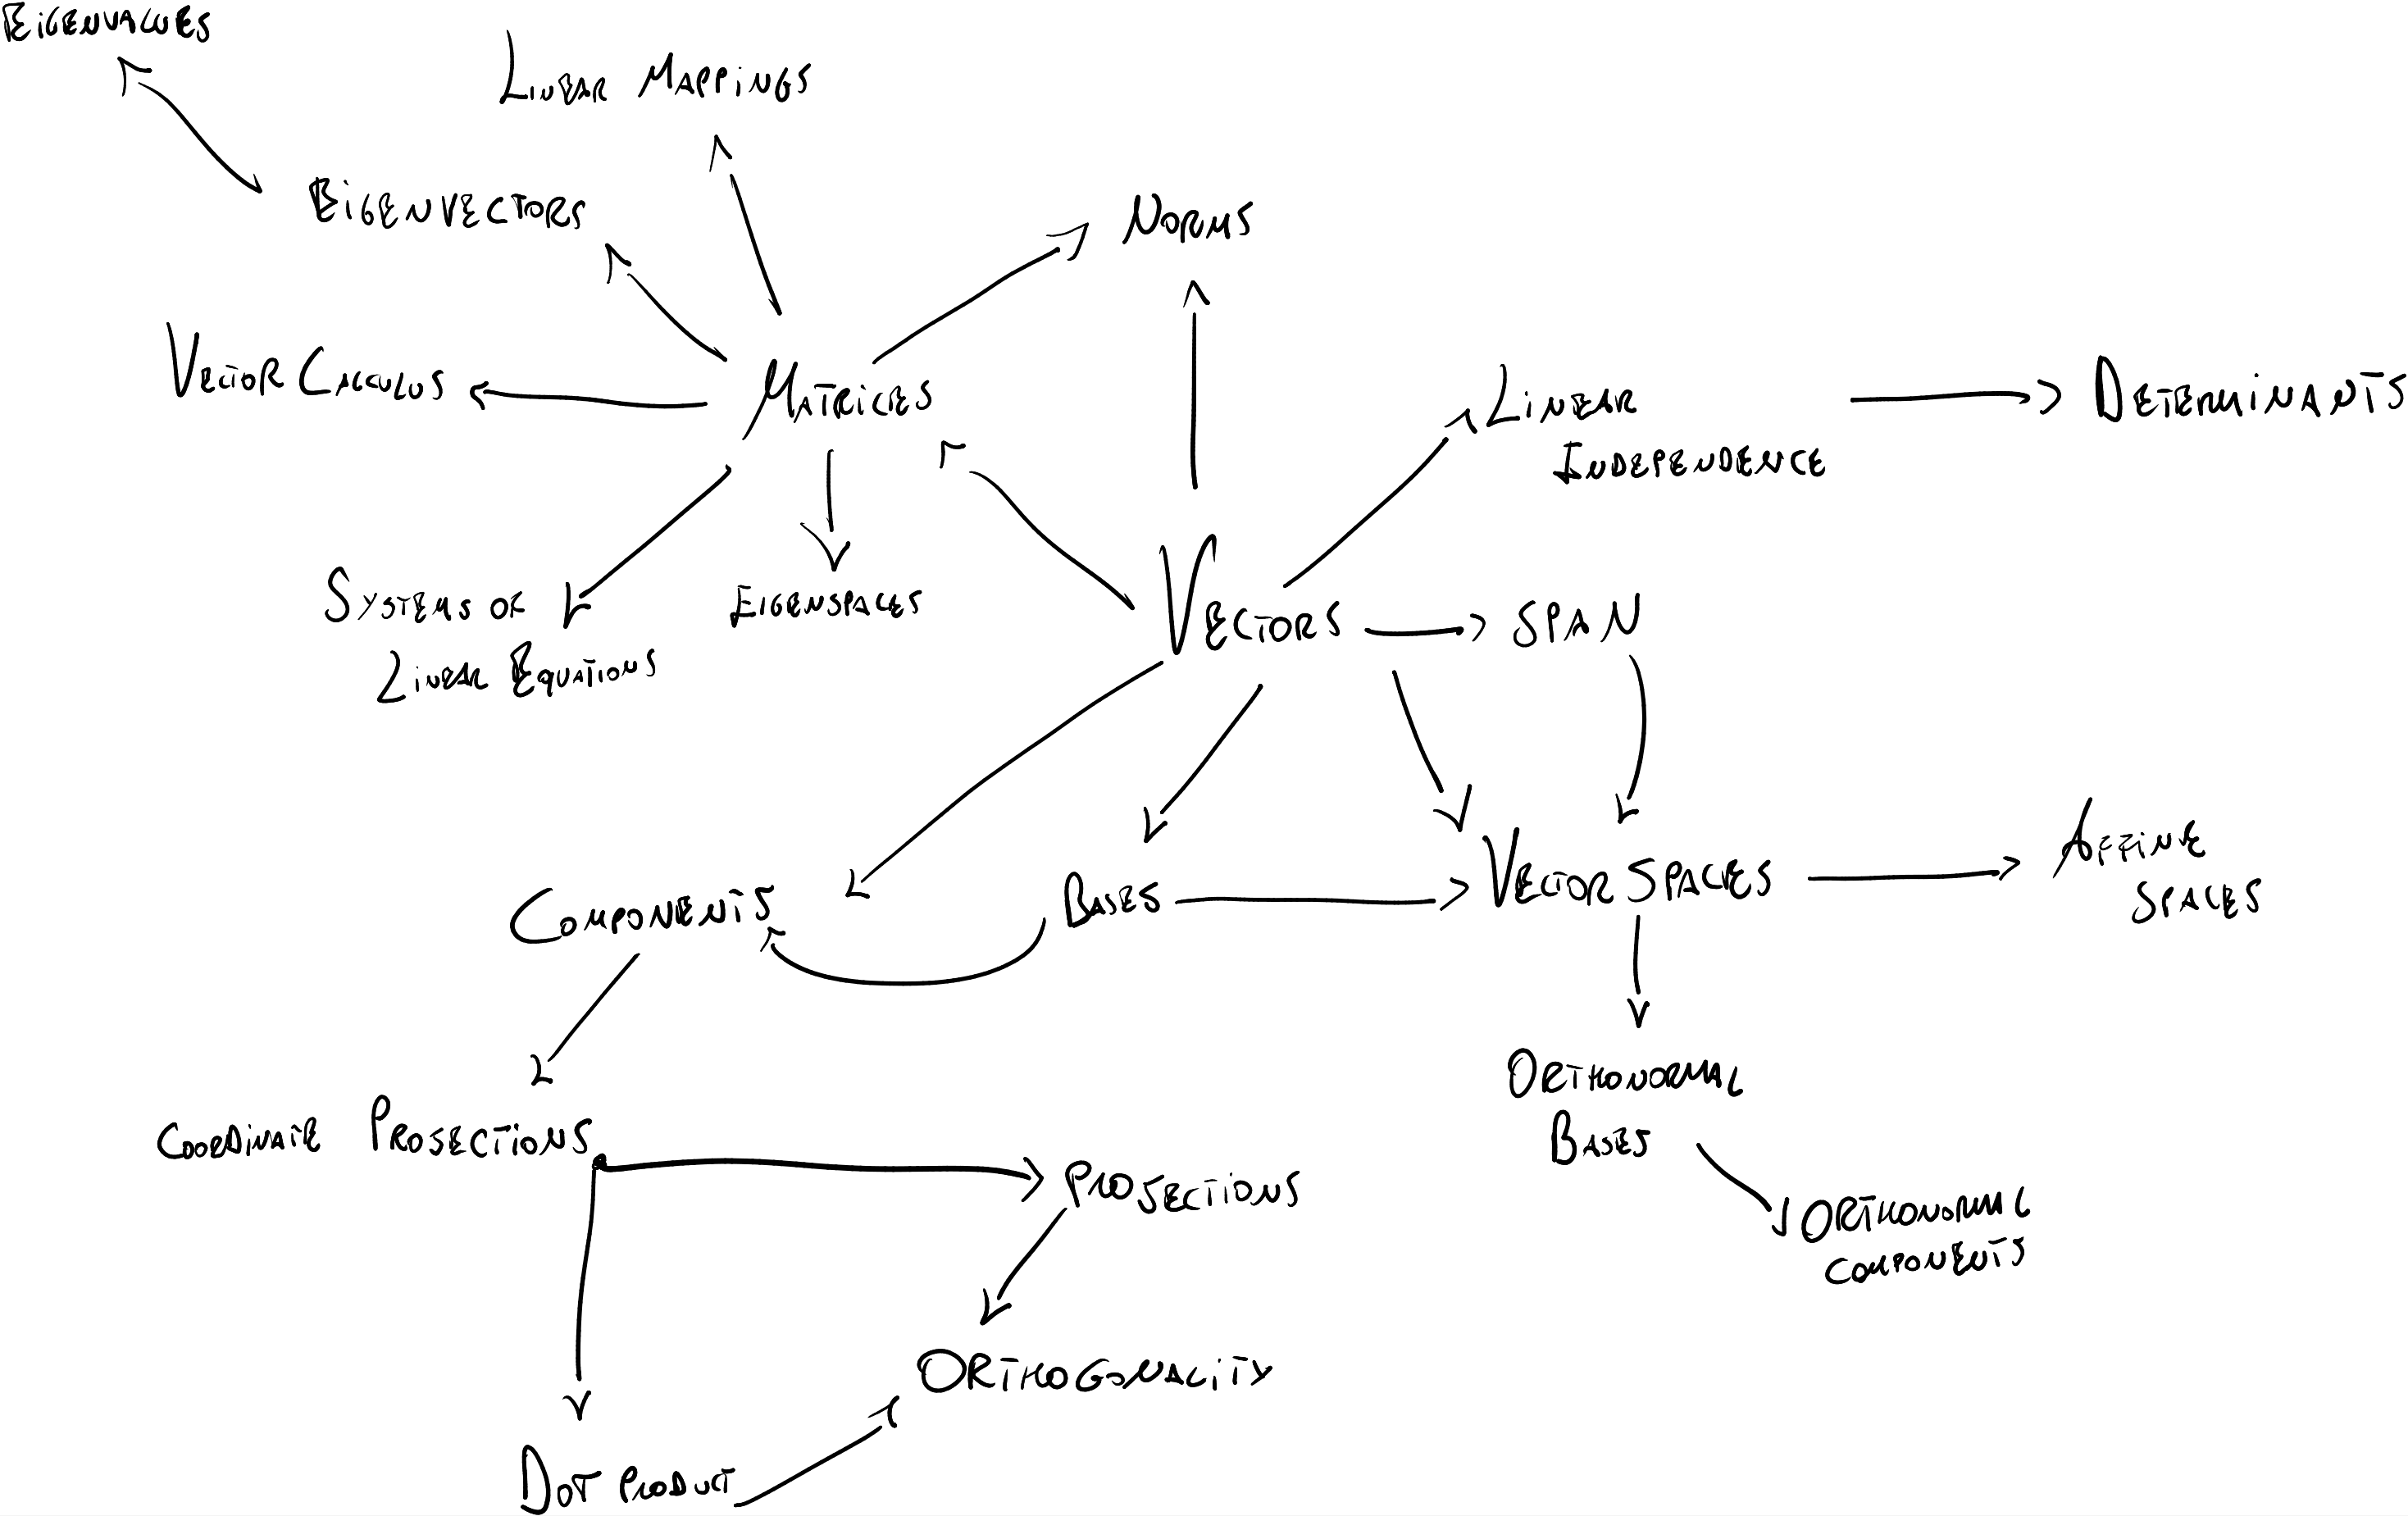 EIGENVALUES
LINEAR MAPPINGS
EIGENVECTORS
NORMS
VECTOR CALCULUS
MATRICES
LINEAR
INDEPENDENCE
DETERMINANTS
SYSTEMS OF
LINEAR EQUATIONS
EIGENSPACES
VECTORS
SPAN
COMPONENTS
BASES
VECTOR SPACES
AFFINE
SPACES
ORTHONORMAL
BASES
COORDINATE PROJECTIONS
PROJECTIONS
ORTHONORMAL
COMPONENTS
ORTHOGONALITY
DOT PRODUCT